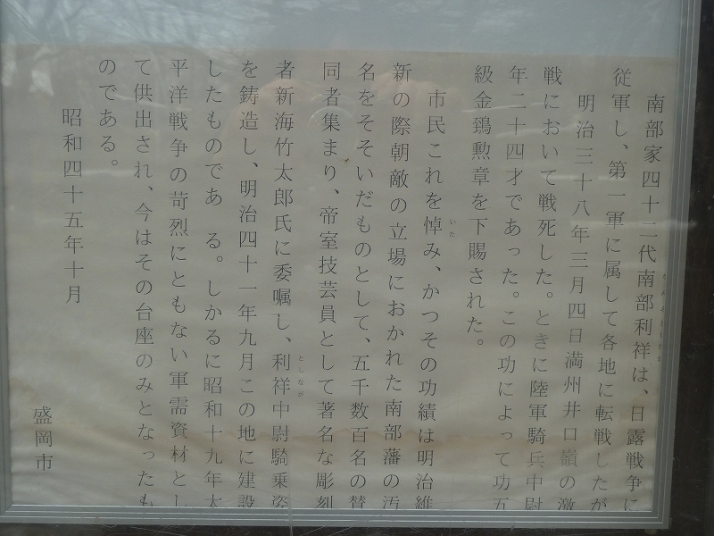 南部家四十二代南部利祥は、日露戦争に
従軍し、第一軍に属して各地に転戦したが
明治三十八年三月四日満州井口嶺の激
戦において戦死した。ときに陸軍騎兵中尉
年二十四才であった。この功によって功五
級金鵄勲章を下賜された。
市民これを悼み、かつその功績は明治維
いた
新の際朝敵の立場におかれた南部藩の汚
名をそそいだものとして、五千数百名の賛
同者集まり、帝室技芸員として著名な彫刻
者新海竹太郎氏に委嘱し、利祥中尉騎乗姿
としなが
を鋳造し、明治四十一年九月この地に建設
したものであ る。しかるに昭和十九年太
平洋戦争の苛烈にともない軍需資材とし
て供出され、今はその台座のみとなったも
のである。
昭和四十五年十月
盛岡市